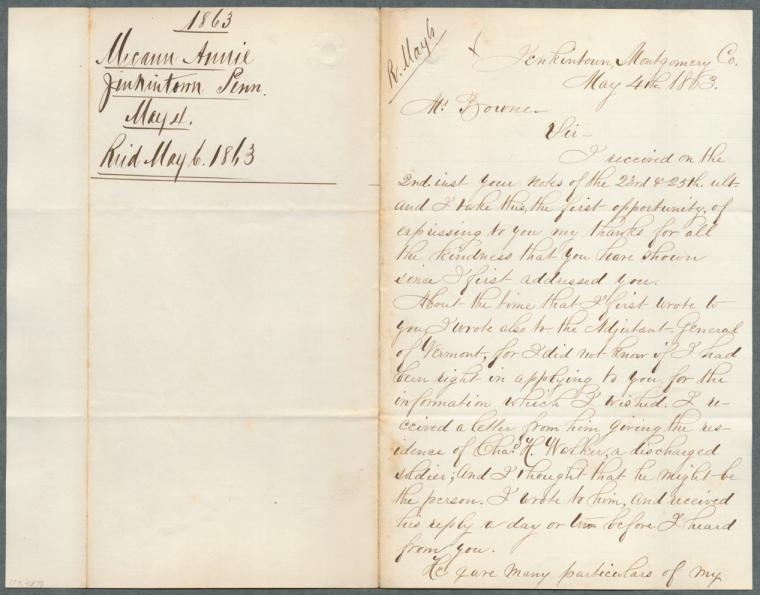 1863
Mccann Annie
Jenkintown Penn.
May 4.
Rec'd May 6. 1863
R. May 6
Jenkintown, Montgomery Co.
May 4th 1863.
Mr Bowne—
Sir—
I received on the
2nd inst your notes of the 23rd & 25th ult.
and I take this, the first opportunity, of
expressing to you my thanks for all
the kindness that you have shown
since I first addressed you.
About the time that I first wrote to
you, I wrote also to the Adjutant General
of Vermont, for I did not know if I had
been right in applying to you for the
information which I wished. I re-
ceived a letter from him giving the res-
idence of Chas. H. Walker, a discharged
soldier; And I thought that he might be
the person. I wrote to him, and received
his reply a day or two before I heard
from you.
He gave many particulars of my